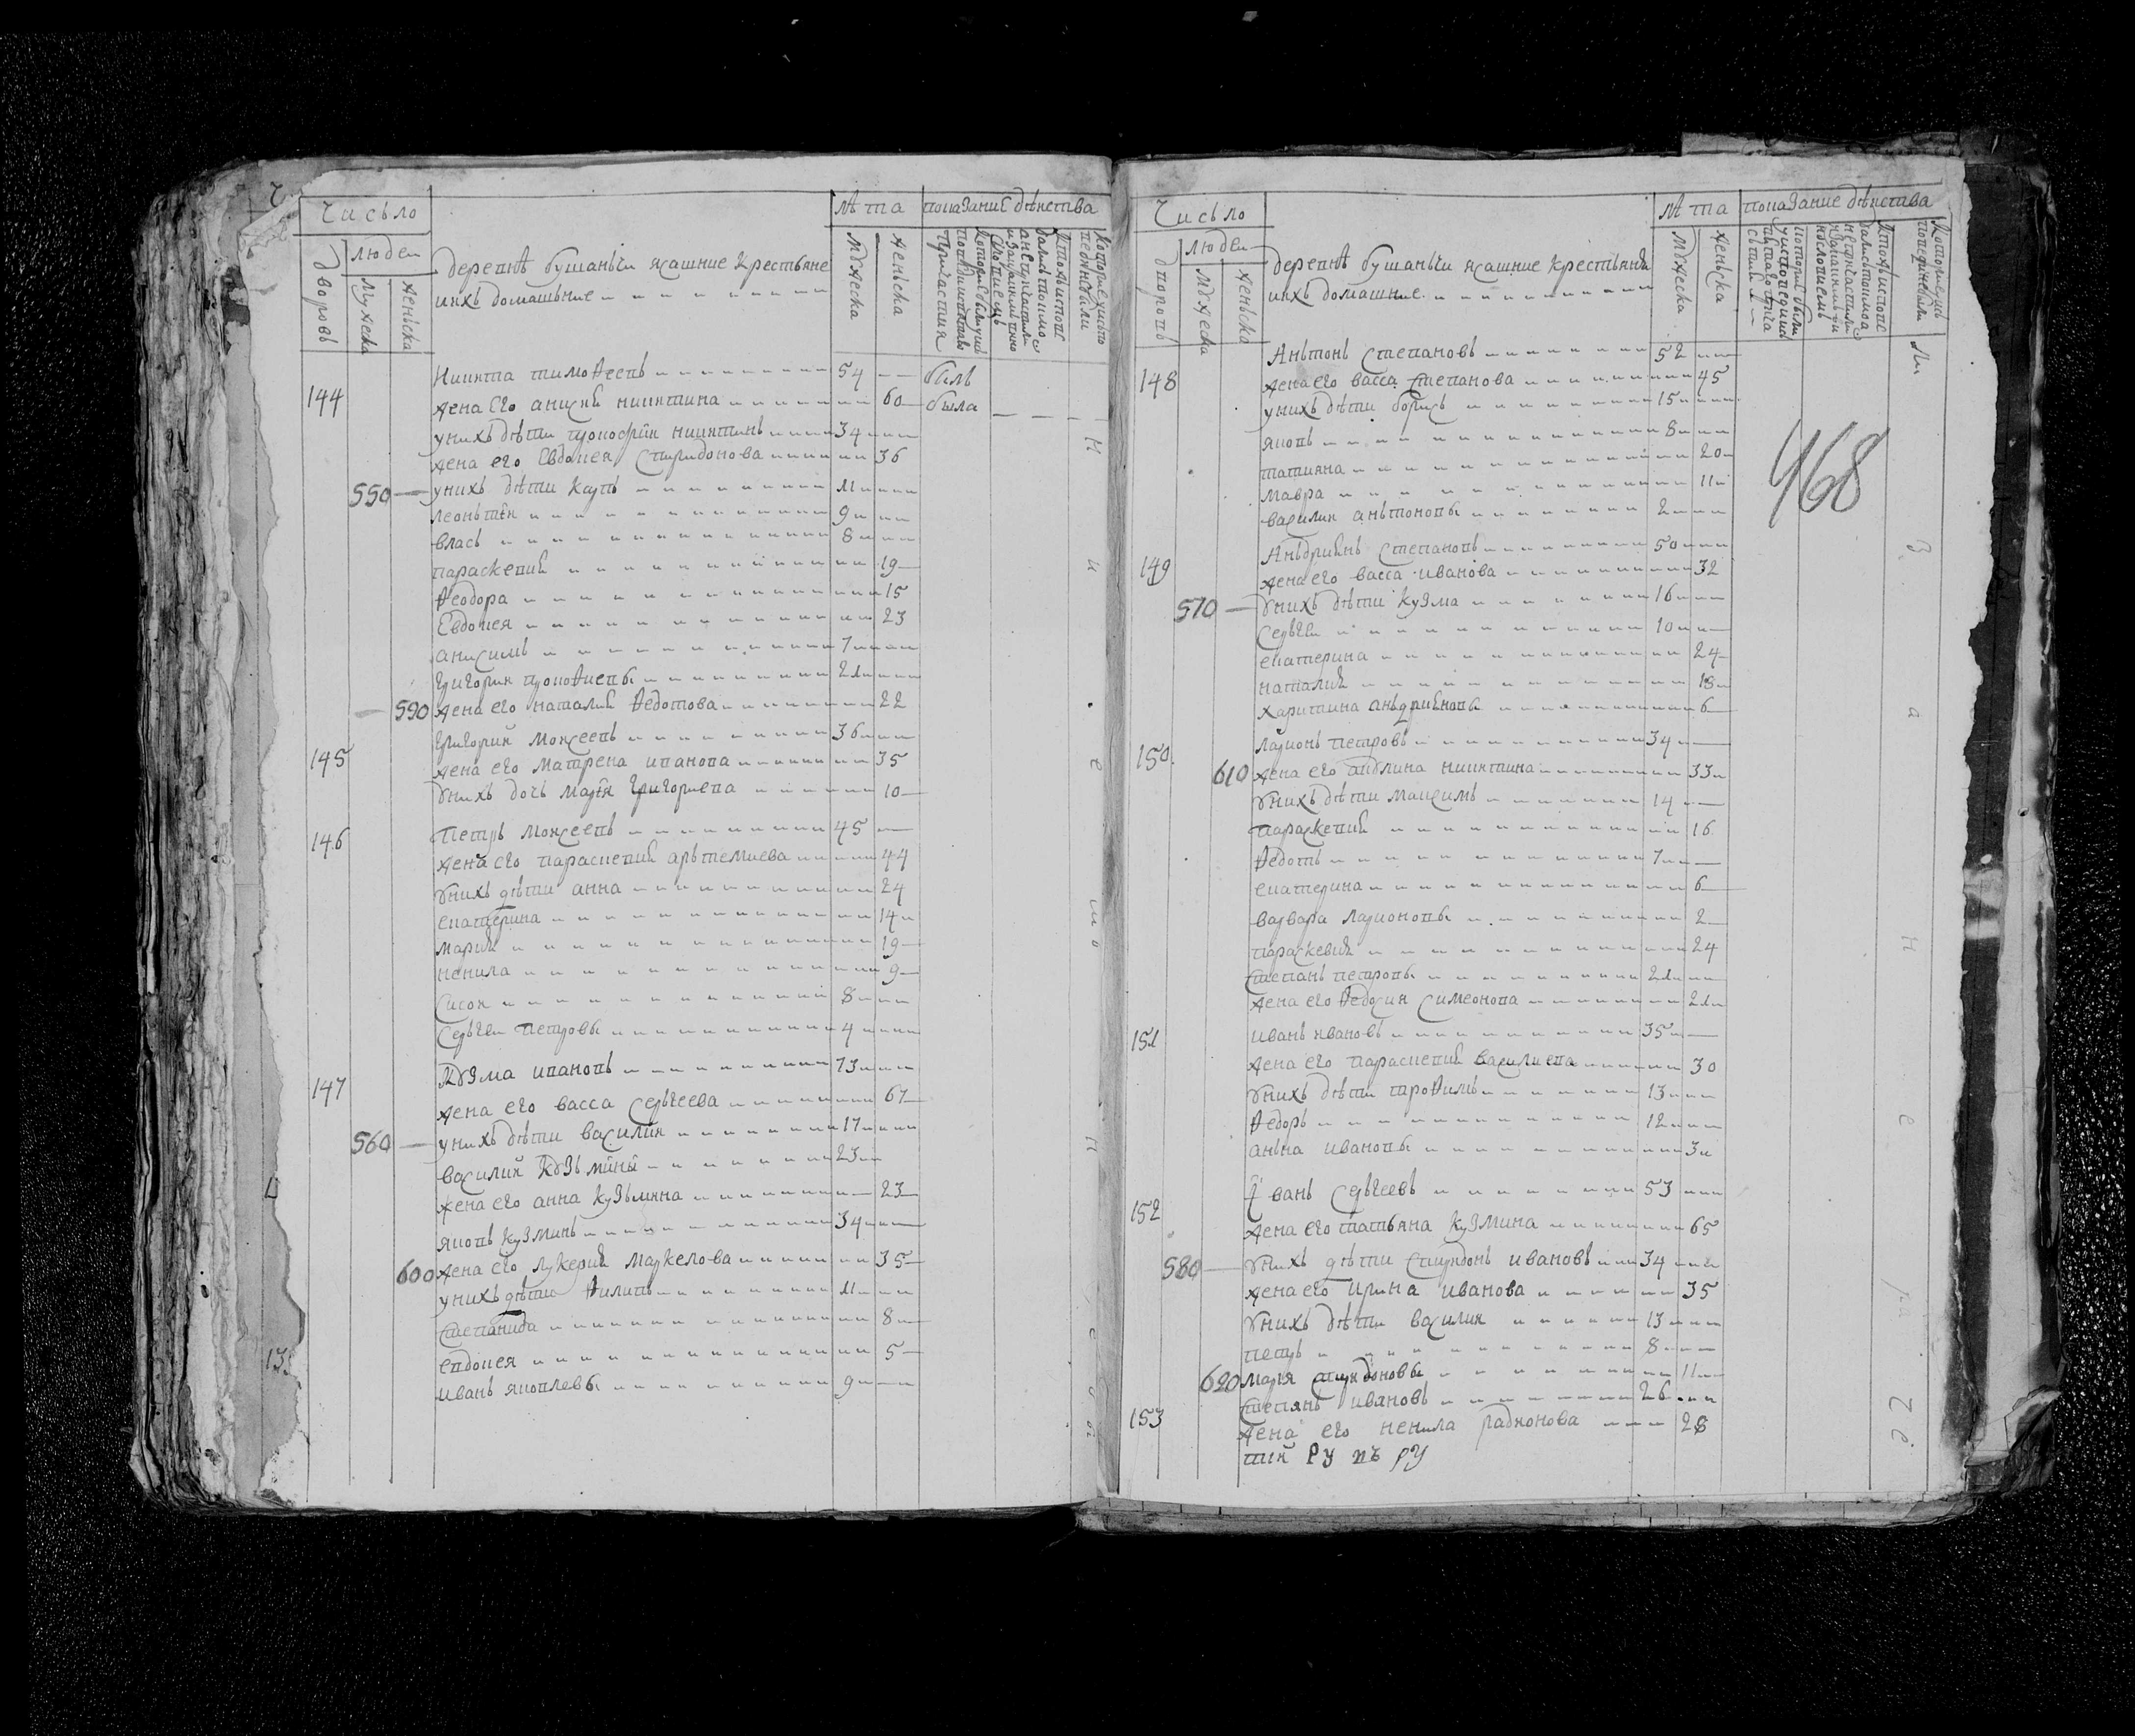 число
лѣта показание дѣиства
дворовъ
людеи
мужеска
женьска
деревнѣ бушаньчи ясашние крестьяне
ихъ домашьние
мужеска
женьска
Никита тимоѳеевъ 54 былъ
144 жена его анисия никитина 60 была
унихъ дѣти прокофій никитинъ 34
жена его Евдокея спиридонова 36
550 унихъ дѣти карпъ 11
леоньтей 9
власъ 8
параскевия 19
ѳеодора 15
Евдокея 23
анисимъ 7
григории прокоѳиевы 21
590 жена его наталия ѳедотова 22
145 григорий мокеевъ 36
жена его матрена иванова 35
унихъ дочь марія григориева 10
146 петръ мокеевъ 45
жена его параскевия арьтемиева 44
унихъ дѣти анна 24
екатерина 14
мария 19
ненила 9
сисои 8
серьгеи петровы 4
147 кузма ивановъ 73
жена его васса серьгеева 67
560 унихъ дѣти василии 17
василии кузьмины 23
жена его анна кузьмина 23
яковъ кузминъ 34
600 жена его лукерия маркелова 35
унихъ дѣти ѳилипъ 11
степанида 8
евдокея 5
иванъ яковлевы 9
число
лѣта показание дѣиства
дворовъ
людеи
мужеска
женьска
деревнѣ бушаньчи ясашние крестьяня
ихъ домашние
мужеска
женьска
Аньтонъ степановъ 52
148 жена его васса степанова 45
унихъ дѣти борисъ 15
яковъ 8
татияна 20
мавра 11
василии аньтоновы 2
968
149 Аньдриянъ степановъ 50
жена его васса иванова 32
570 унихъ дѣти кузма 16
серьгеи 10
екатерина 24
наталия 18
харитина аньдрияновы 6
150 ларионъ петровъ 34
610 жена его акулина никитина 33
унихъ дѣти максимъ 14
параскевия 16
ѳедотъ 7
екатерина 6
варвара ларионовы 2
параскевия 24
степанъ петровы 21
жена его ѳедосия симеонова 21
151 иванъ ивановъ 35
жена его параскевия василиева 30
унихъ дѣти троѳимъ 13
ѳедоръ 12
аньна ивановы 3
152 Iванъ серьгеевъ 53
жена его татьяна кузмина 65
580 унихъ дѣти спиридонъ ивановъ 34
жена его ирина иванова 35
унихъ дѣти василии 13
петръ 8
620 марія спиридоновы 11
степанъ ивановъ 26
153 жена его ненила радионова 28